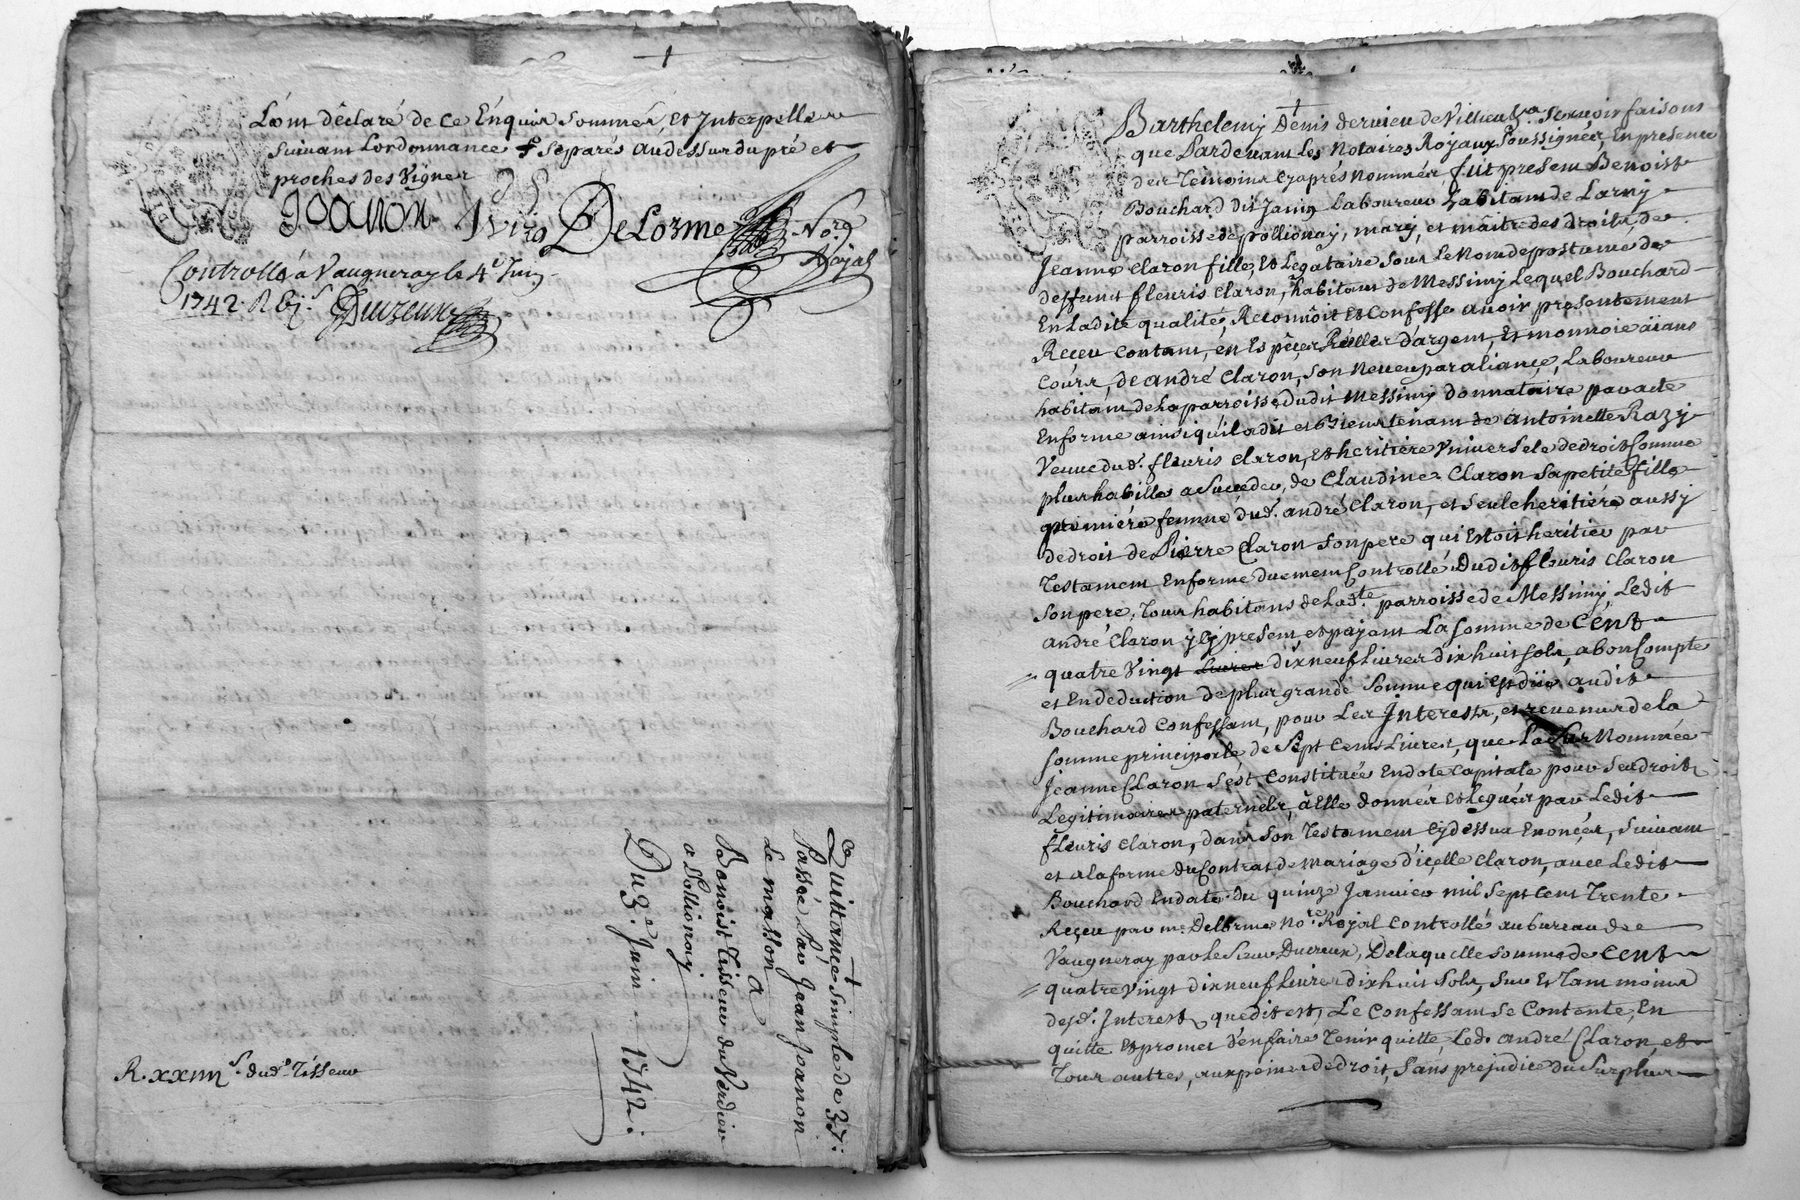 L'ont déclaré de ce Enquis sommés, et Interpellés
suivant Lordonnance ╪ separés audessus du pré et
proches des Vignes
J Joanon Delorme No.re
Royal
Controllé a Vaugneray le 4e Juin
1742. R 6 s. Ducreux
Quittance simple de 37:
Passée Par Jean Joanon
Le masson a
Benoist Tisseur du Verdier
a Pollionay
Du 3e. Juin. 1742.
R. xxiiii s. dud. Tisseur
Barthelemy Denis dervieu de Villieu &a Scavoir faisons
que Pardevant Les Notaires Royaux Soussignés, En presence
des Temoins Cyaprés Nommés fut present Benoist
Bouchard dit Janiq Laboureur habitant de Larny
parroisse de pollionay, mary, et maitre des droits, de
Jeanne Claron fille, et Legataire sous Le Nom de postume de
deffunt fleuris Claron, habitant de Messimy Lequel Bouchard
En Ladite qualité, Reconnoit et Confesse avoir presentement
Receu Contant, en Espèces Réelles d'argent, et monnoie aïans
Cours, de andré Claron, Son Neveu par aliance, Laboureur
habitant de La parroisse dudit Messimy donnataire par acte
En forme ainsi qu'il a dit et bientenant de antoinette Razy
Veuve dud. fleuris Claron, et heritiere Universele de droit Comme
plus habille a Succeder, de Claudine Claron sa petite fille
premiére femme dud. andré Claron, et Seule heritiére aussy
de droit de Pierre Claron Son pere qui Estoit heritier par
Testament En forme duement Controllé Dudit fleuris Claron
Son pere, Tous habitans de Lad.te parroisse de Messimy, Ledit
andré Claron ycy present, et païant La Somme de Cent
quatre Vingt Livres dixneuf Livres dixhuit Sols, a bon Compte
et En deduction de plus grande Somme qui Est düe audit
Bouchard Confessant, pour Les Interests, et revenus de la
Somme principale, de Sept Cents Livres, que La sus Nommée
Jeanne Claron S'est Constituée En dote Capitale pour Ses droits
Legitimaires paternels, à Elle donnés et Legués par Ledit
fleuris Claron, dans Son Testament Cydessus Enoncés, Suivant
et a la forme du Contrat de mariage d'icelle Claron, avec Ledit
Bouchard En date du quinze Janvier mil Sept Cent Trente
Reçeu par me. Delorme No.re Royal Controllé au bureau de
Vaugneray par Le Sieur Ducreux, De laquelle somme de Cent
quatre Vingt dixneuf Livres dixhuit Sols, Sur et Tant moins
desd. Interest que dit est, Le Confessant Se Contente, En
quitte Et promet d'en faire Tenir quitte Led. andré Claron, et
Tous autres, aux peines de droit, Sans prejudice du Surplus